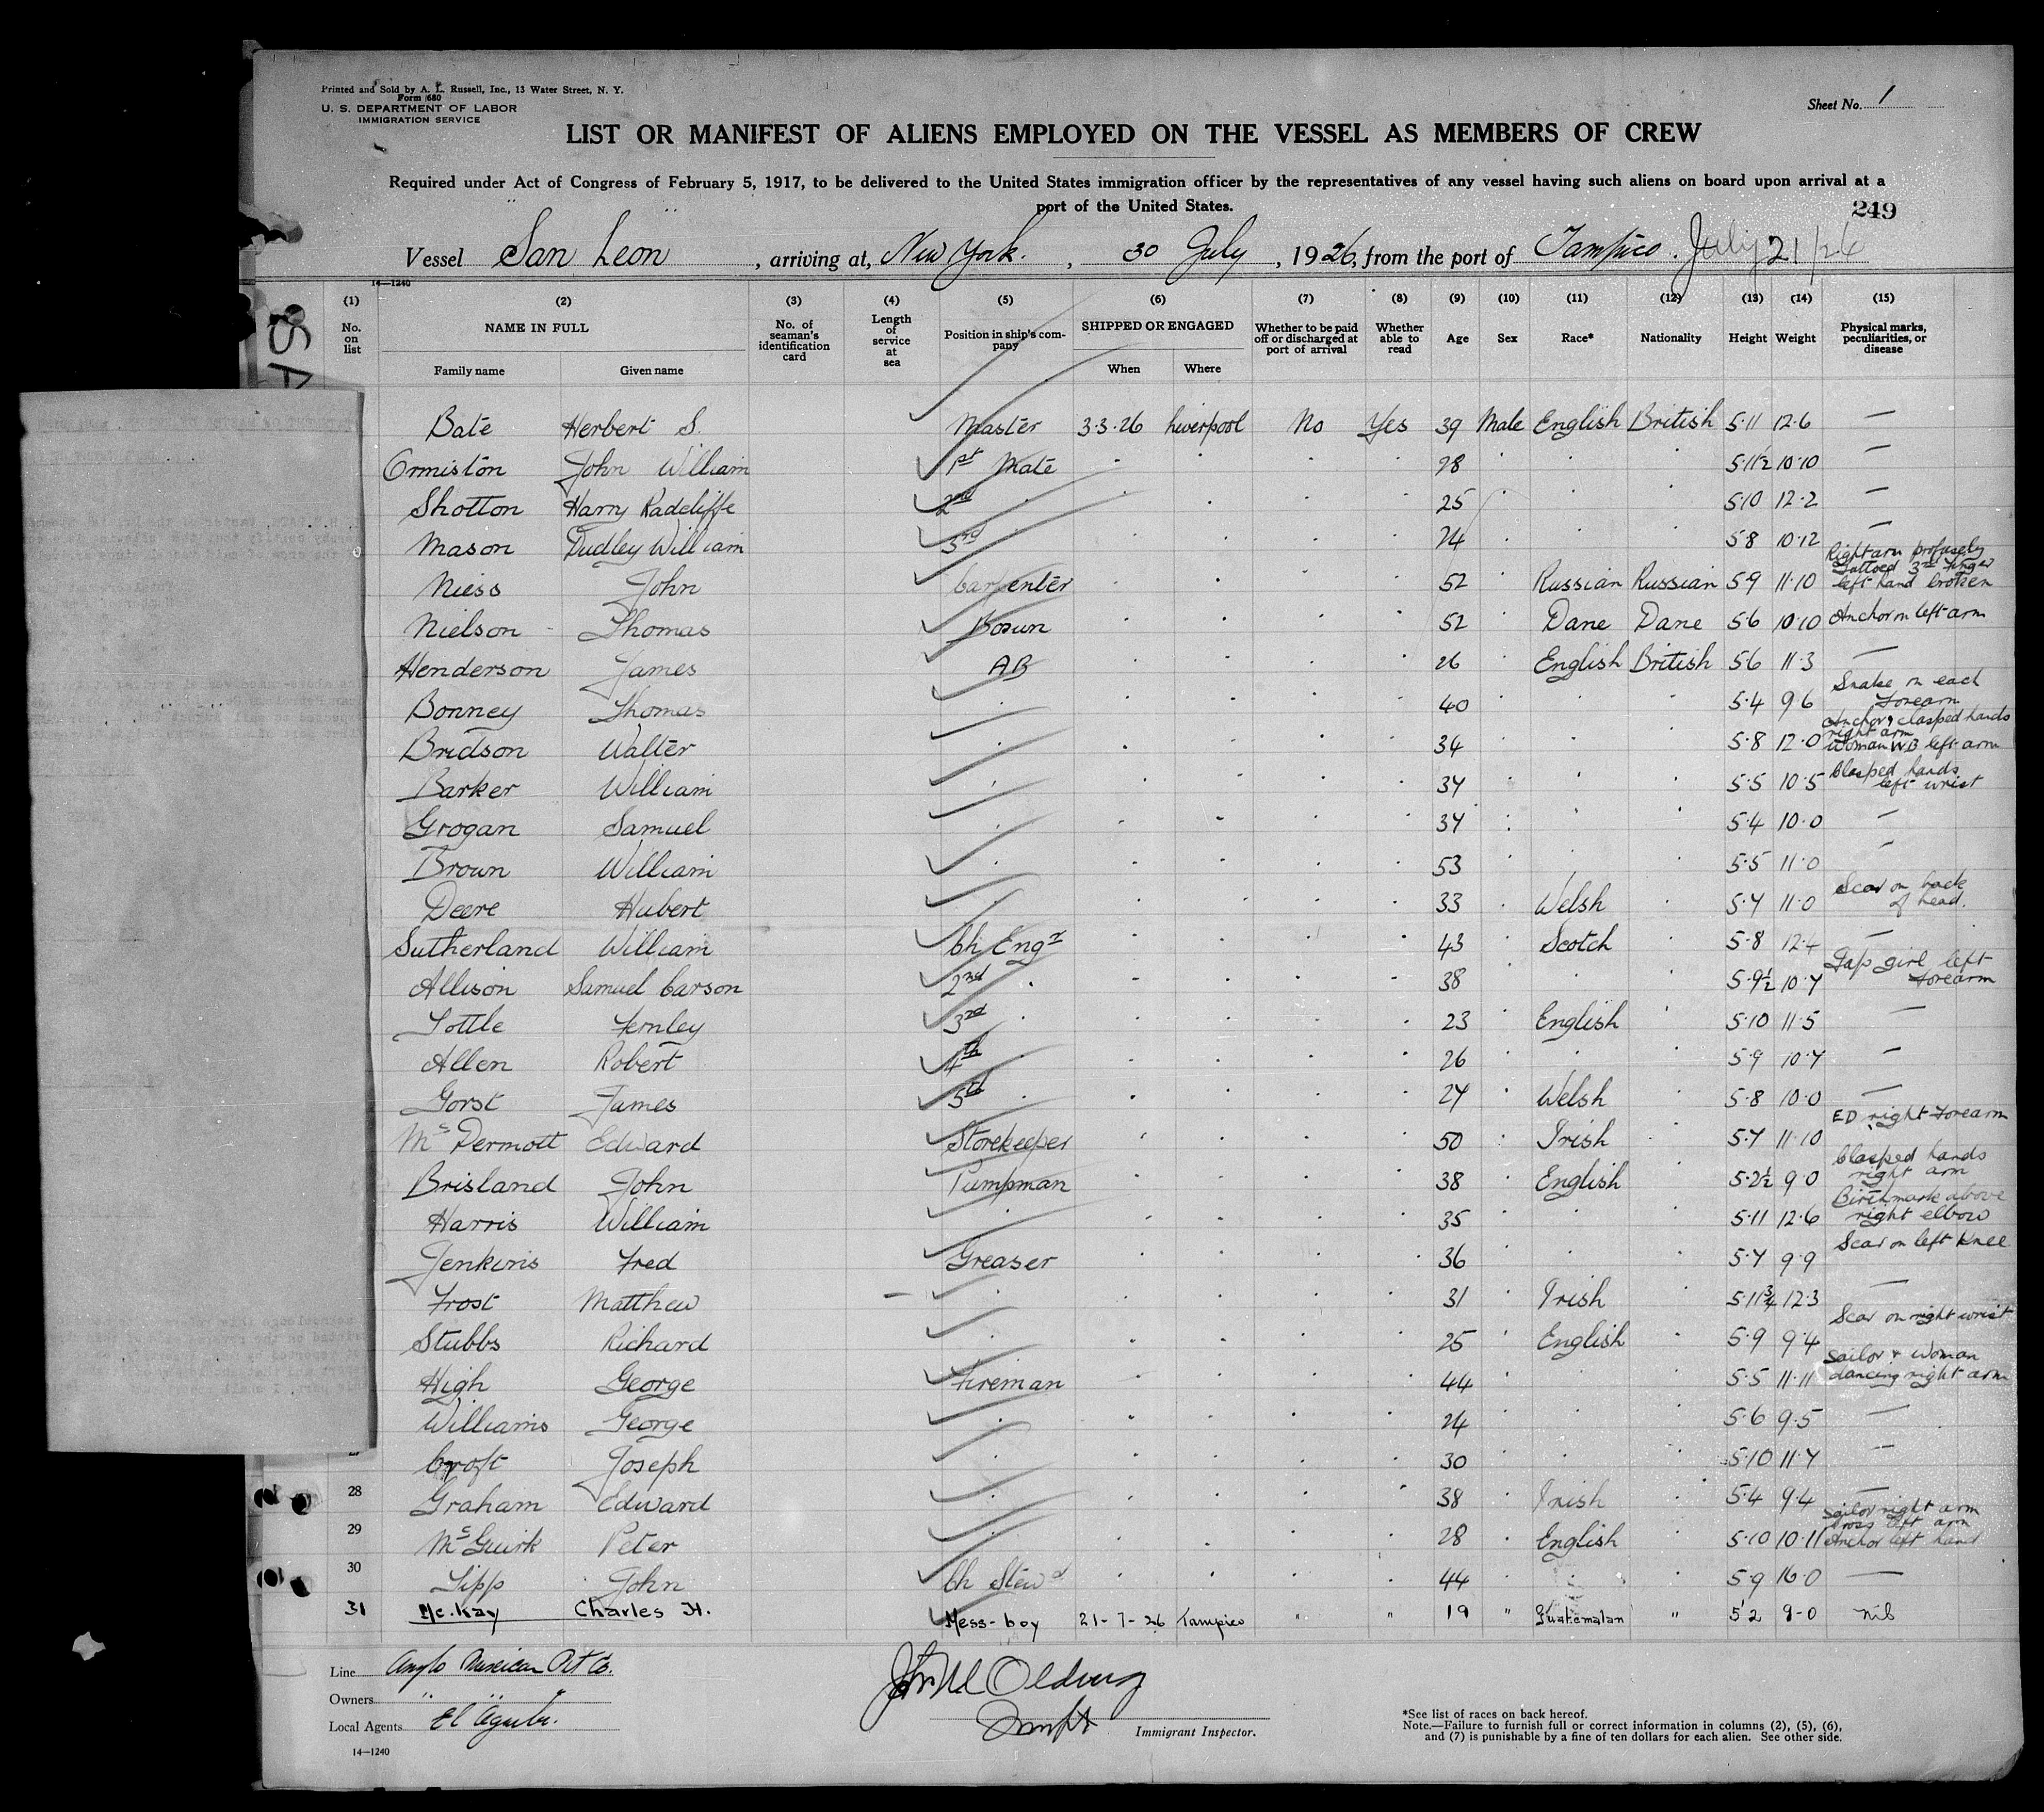 Printed and Sold by A. L. Russell, Inc., 13 Water Street, N. Y.
Form 680
U. S. DEPARTMENT OF LABOR
IMMIGRATION SERVICE
Sheet No. 1
LIST OR MANIFEST OF ALIENS EMPLOYED ON THE VESSEL AS MEMBERS OF CREW
Required under Act of Congress of February 5, 1917, to be delivered to the United States immigration officer by the representatives of any vessel having such aliens on board upon arrival at a
port of the United States.
249
Vessel "San Leon", arriving at, New York., 30 July, 1926, from the port of Tampico. July 21/26
14—1240
(1) (2) (3) (4) (5) (6) (7) (8) (9) (10) (11) (12) (13) (14) (15)
No. on list NAME IN FULL No. of seaman's identification card Length of service at sea Position in ship's company SHIPPED OR ENGAGED Whether to be paid off or discharged at port of arrival Whether able to read Age Sex Race* Nationality Height Weight Physical marks, peculiarities, or disease
Family name Given name When Where
Bate Herbert S. Master 3.3.26 Liverpool No Yes 39 Male English British 5.11 12.6 —
Ormiston John William 1st Mate " " " " 28 " " " 5.11½ 10.10 —
Shotton Harry Radcliffe 2nd " " " " " 25 " " " 5.10 12.2 —
Mason Dudley William 3rd " " " " " 24 " " " 5.8 10.12 —
Niess John Carpenter " " " " 52 " Russian Russian 5.9 11.10 Right arm profusely Tattoed 3rd finger left hand broken
Nielson Thomas Bosun " " " " 52 " Dane Dane 5.6 10.10 Anchor on left arm
Henderson James AB " " " " 26 " English British 5.6 11.3 —
Bonney Thomas " " " " " 40 " " " 5.4 9.6 Snake on each forearm
Bridson Walter " " " " " 34 " " " 5.8 12.0 Anchor & clasped hands right arm Woman WB left arm
Barker William " " " " " 37 " " " 5.5 10.5 Clasped hands left wrist
Grogan Samuel " " " " " 37 " " " 5.4 10.0 —
Brown William " " " " " 53 " " " 5.5 11.0 —
Deere Hubert " " " " " 33 " Welsh " 5.7 11.0 Scar on back of head.
Sutherland William Ch Engr " " " " 43 " Scotch " 5.8 12.4 —
Allison Samuel Carson 2nd " " " " " 38 " " " 5.9½ 10.7 Jap girl left forearm
Tottle Fernley 3rd " " " " " 23 " English " 5.10 11.5 —
Allen Robert 4th " " " " " 26 " " " 5.9 10.7 —
Gorst James 5th " " " " " 27 " Welsh " 5.8 10.0 —
McDermott Edward Storekeeper " " " " 50 " Irish " 5.7 11.10 ED right forearm
Brisland John Pumpman " " " " 38 " English " 5.2½ 9.0 Clasped hands right arm
Harris William " " " " " 35 " " " 5.11 12.6 Birthmark above right elbow
Jenkins Fred Greaser " " " " 36 " " " 5.7 9.9 Scar on left Knee
Frost Matthew — " " " " " 31 " Irish " 5.11¾ 12.3 —
Stubbs Richard " " " " " 25 " English " 5.9 9.4 Scar on right wrist
High George Fireman " " " " 44 " " " 5.5 11.11 Sailor & Woman dancing right arm
Williams George " " " " " 24 " " " 5.6 9.5 —
Croft Joseph " " " " " 30 " " " 5.10 11.7 —
28 Graham Edward " " " " " 38 " Irish " 5.4 9.4 —
29 McGuirk Peter " " " " " 28 " English " 5.10 10.11 Sailor right arm Cross left arm Anchor left hand
30 Tipp John Ch Stewd " " " " 44 " " " 5.9 16.0 —
31 Mc.Kay Charles H. Mess-boy 21-7-26 Tampico " " 19 " Guatemalan " 5'2 9-0 Nil
Line Anglo Mexican Pet Co.
Owners " " "
Local Agents El Aguila.
Immigrant Inspector.
*See list of races on back hereof.
Note.—Failure to furnish full or correct information in columns (2), (5), (6),
and (7) is punishable by a fine of ten dollars for each alien. See other side.
14—1240